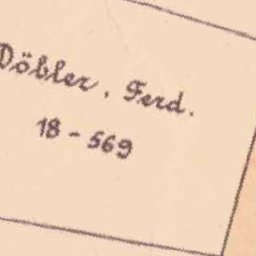 Döbler, Ferd.
18 - 569